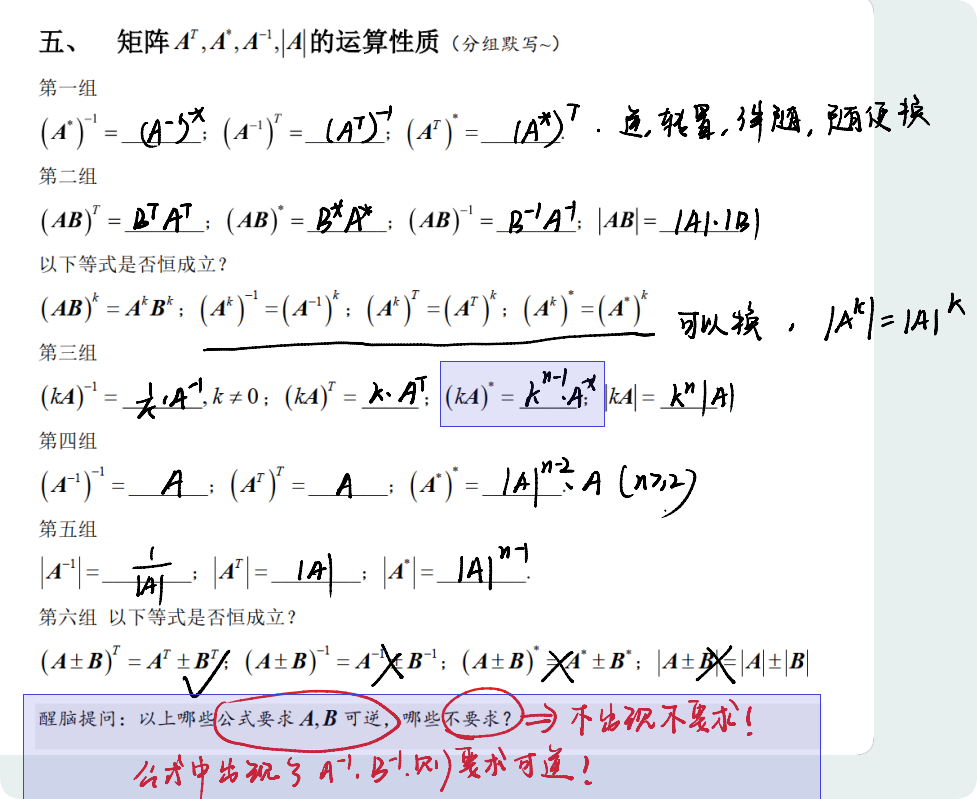 五、 矩阵 Aᵀ, A*, A⁻¹, |A| 的运算性质（分组默写~）
第一组
(A*)⁻¹ = (A⁻¹)*; (A⁻¹)ᵀ = (Aᵀ)⁻¹; (Aᵀ)* = (A*)ᵀ. 逆, 转置, 伴随, 随便换
第二组
(AB)ᵀ = BᵀAᵀ; (AB)* = B*A*; (AB)⁻¹ = B⁻¹A⁻¹; |AB| = |A|·|B|
以下等式是否恒成立？
(AB)ᵏ = AᵏBᵏ; (Aᵏ)⁻¹ = (A⁻¹)ᵏ; (Aᵏ)ᵀ = (Aᵀ)ᵏ; (Aᵏ)* = (A*)ᵏ 可以换, |Aᵏ| = |A|ᵏ
第三组
(kA)⁻¹ = 1/k·A⁻¹, k ≠ 0; (kA)ᵀ = k·Aᵀ; (kA)* = kⁿ⁻¹·A*; |kA| = kⁿ|A|
第四组
(A⁻¹)⁻¹ = A; (Aᵀ)ᵀ = A; (A*)* = |A|ⁿ⁻²·A (n≥2)
第五组
|A⁻¹| = 1/|A|; |Aᵀ| = |A|; |A*| = |A|ⁿ⁻¹.
第六组 以下等式是否恒成立？
(A±B)ᵀ = Aᵀ±Bᵀ; (A±B)⁻¹ = A⁻¹±B⁻¹; (A±B)* = A*±B*; |A±B| = |A|±|B|
醒脑提问：以上哪些公式要求 A, B 可逆，哪些不要求？ ⇒ 不出现不要求！
公式中出现了 A⁻¹, B⁻¹, 则要求可逆！